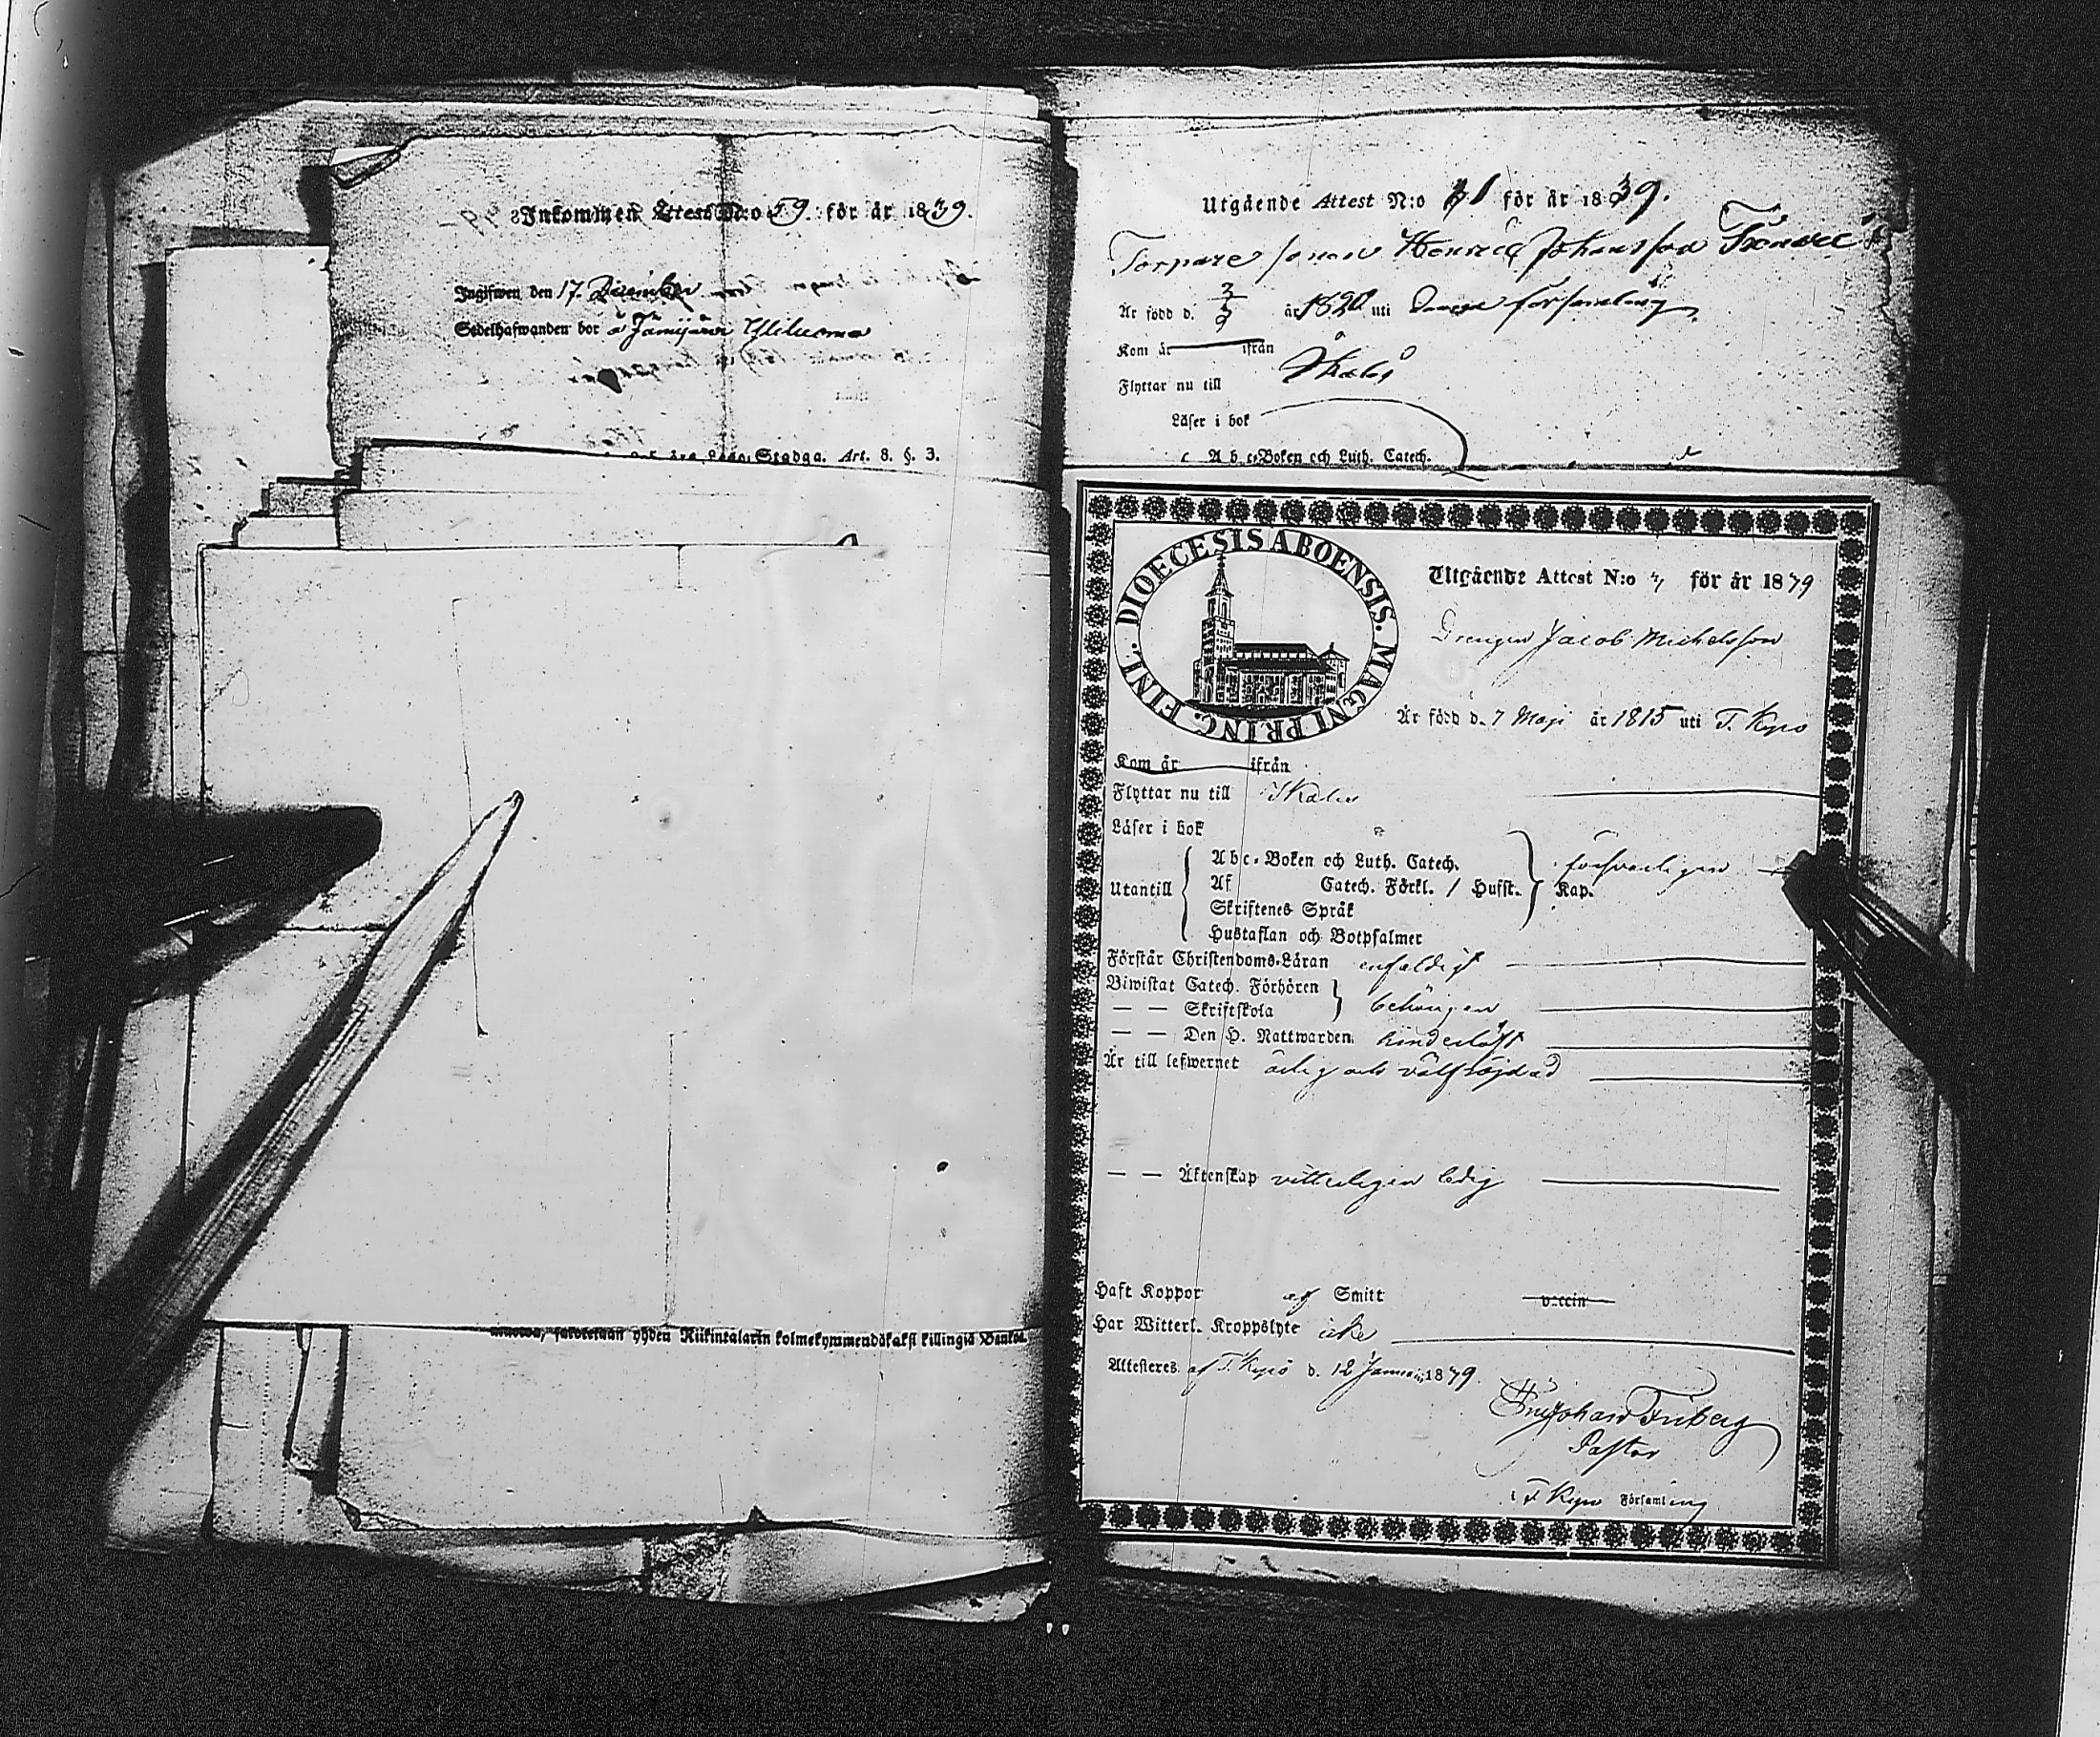 Inkommen Attest N:o 59. för år 1839.
Ingifwen den 17. December
Sedelhafwanden bor å Jämijärvi Yliluoma
Stadga. Art. 8. §. 3.
yhden Riikintalarin kolmekymmendäkaksi killingiä Banko.
Utgående Attest N:o för år 1839.
Torpare sonen Henric Johansson
Är född d. 3/9 år 1820 uti församling
Kom år ifrån
Flyttar nu till Ikalis
Läser i bok
A b c-Boken och Luth. Catech.
DIOECESIS ABOENSIS. MAGNI PRINC. FINL.
Utgående Attest N:o för år 1839
Drengen Jacob Michelsson
Är född d. 7 Maji år 1815 uti T. Kyro
Kom år ifrån
Flyttar nu till Ikalis
Läser i bok
Utantill
Abc-Boken och Luth. Catech. försvarligen
Af Catech. Förkl. / Husst. Kap.
Skriftenes Språk
Hustaflan och Botpsalmer
Förstår Christendoms-Läran enfaldigt
Biwistat Catech. Förhören
— — Skriftskola behörigen
— — Den H. Nattwarden hinderlöst
Är till lefwernet ärlig och välfräjdad
— — Äktenskap vitterligen ledig
Haft Koppor af Smitt vaccin
Har Witterl. Kroppslyte icke
Attesteres af T. Kyro d. 12 Januarii 1839.
Johan Friberg
Pastor
i T. Kyro Församling